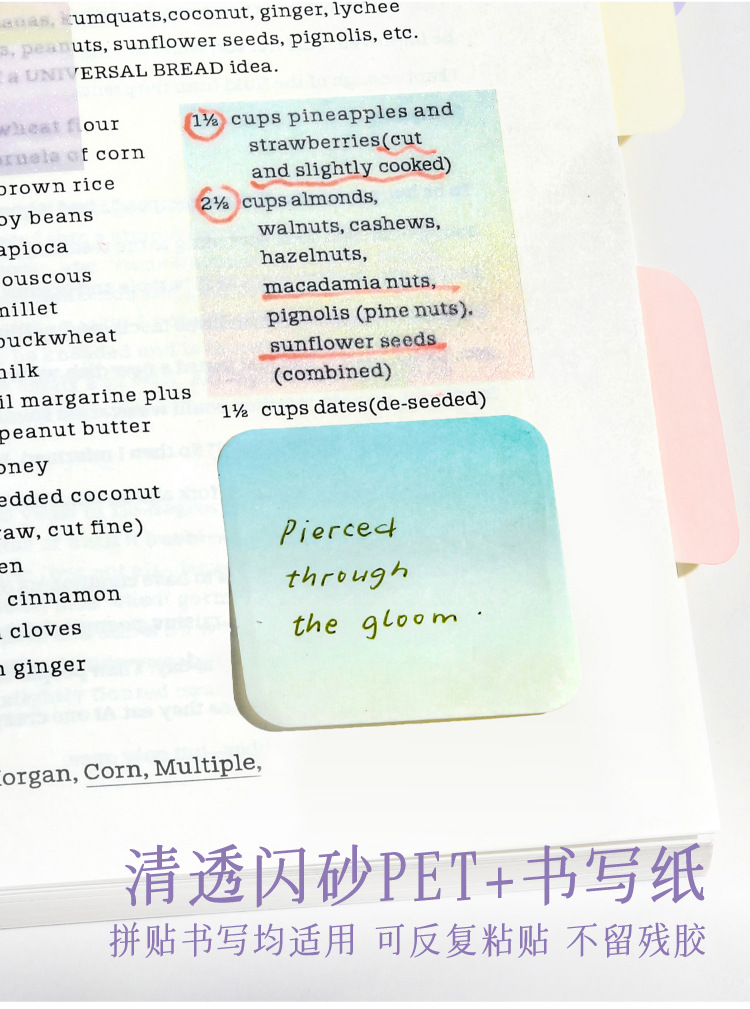 kumquats, coconut, ginger, lychee
peanuts, sunflower seeds, pignolis, etc.
a UNIVERSAL BREAD idea.
wheat flour
of corn
brown rice
oy beans
apioca
ouscous
millet
buckwheat
milk
il margarine plus
peanut butter
oney
edded coconut
raw, cut fine)
en
cinnamon
cloves
ginger
1½ cups pineapples and
strawberries(cut
and slightly cooked)
2½ cups almonds,
walnuts, cashews,
hazelnuts,
macadamia nuts,
pignolis (pine nuts).
sunflower seeds
(combined)
1½ cups dates(de-seeded)
Pierced
through
the gloom.
organ, Corn, Multiple,
清透闪砂PET+书写纸
拼贴书写均适用 可反复粘贴 不留残胶